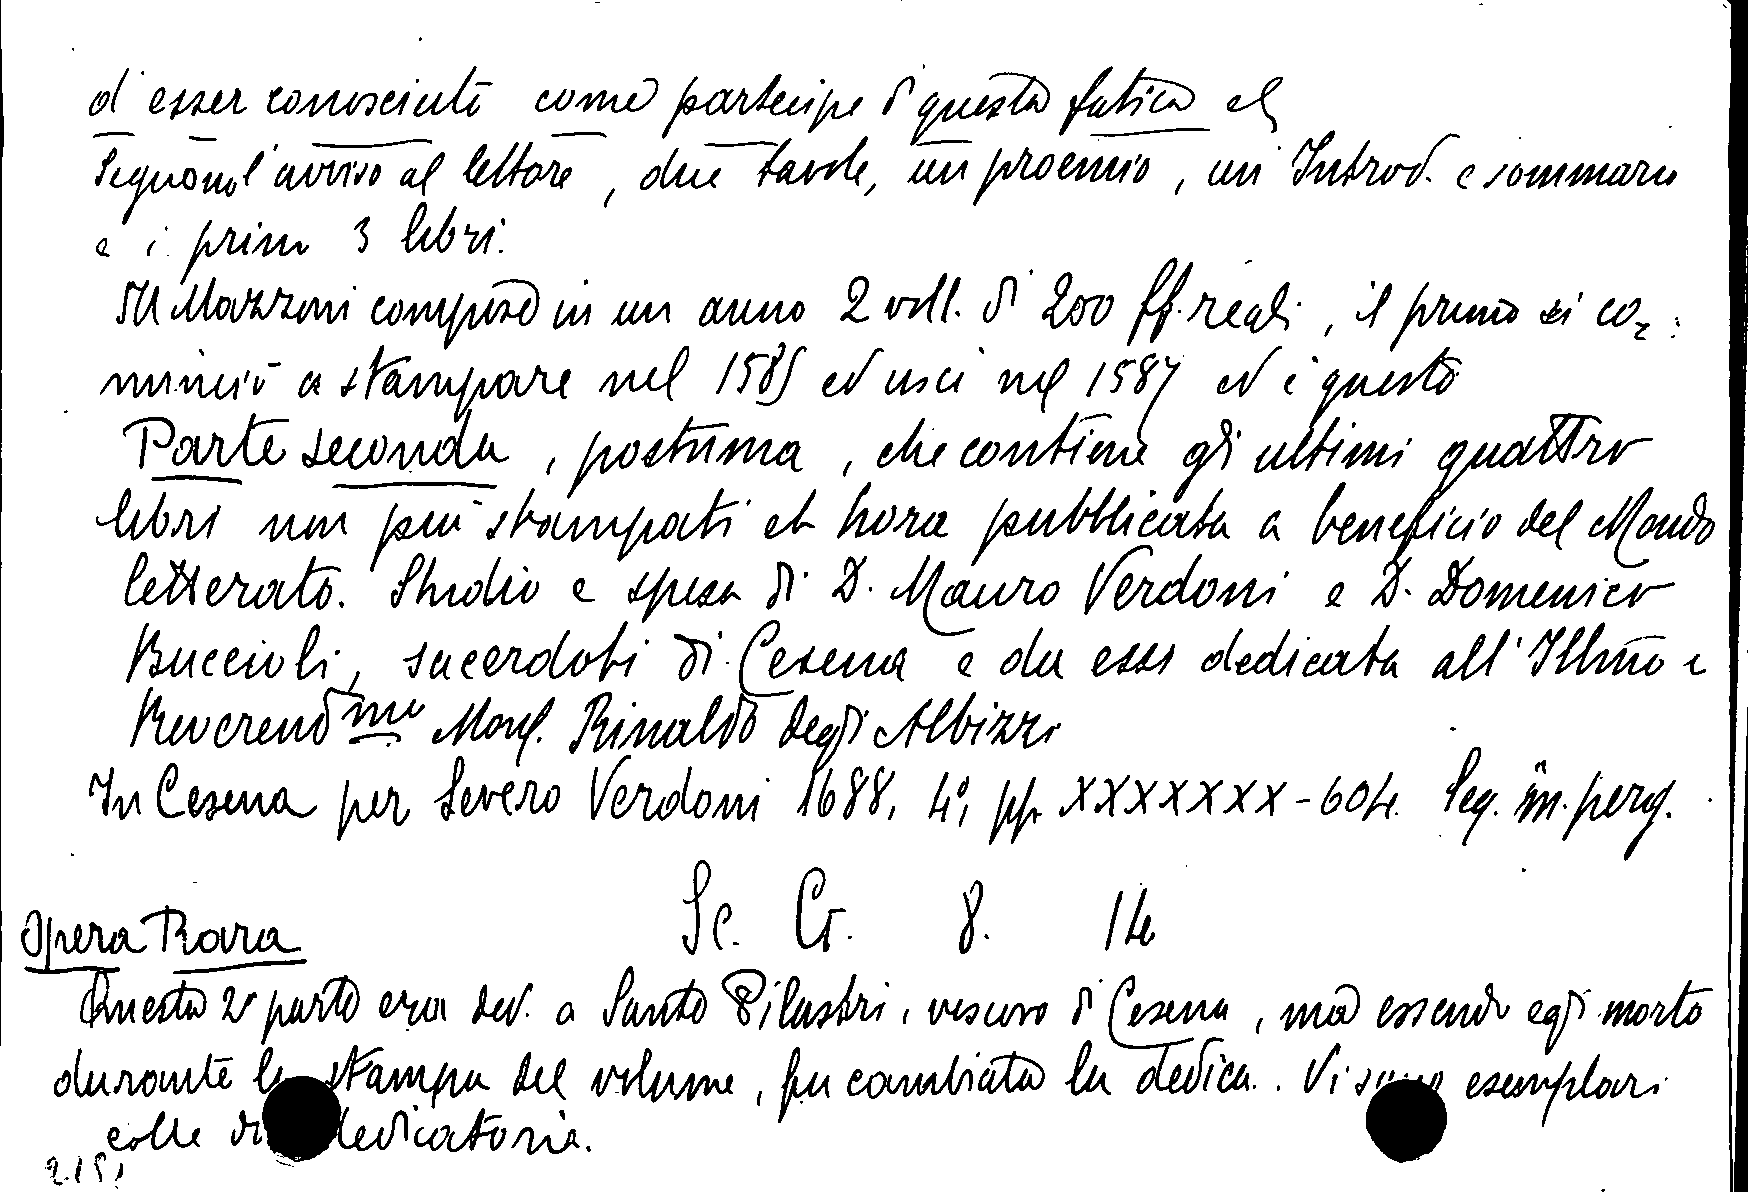 d'esser conosciuto come partecipe di questa fatica el
Seguono l'avviso al lettore, due tavole, un proemio, un Introd. e sommario
e i primi 3 libri.
Il Mazzoni compose in un anno 2 voll. di 200 ff. reali, il primo si co=
minciò a stampare nel 1585 ed uscì nel 1587 ed è questo
Parte seconda, postuma, che contiene gli ultimi quattro
libri non più stampati et hora pubblicata a beneficio del Mondo
letterato. Studio e spesa di D. Mauro Verdoni e D. Domenico
Buccioli, sacerdoti di Cesena e da essi dedicata all'Illmo e
Reverendmo Mons. Rinaldo degli Albizzi
In Cesena per Severo Verdoni 1688, 4°, pp. XXXXXXX-604. Leg. in perg.
Sc. Cr. 8. 14
Opera Rara
Questa 2a parte era ded. a Santo Pilastri, vescovo di Cesena, ma essendo egli morto
durante la stampa del volume, fu cambiata la dedica. Vi sono esemplari
colle dedicatorie.